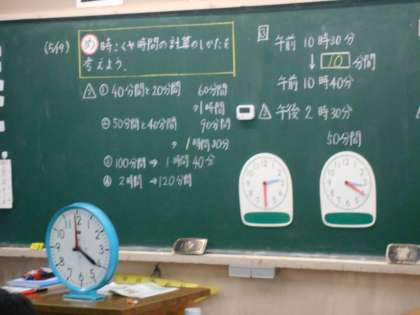 (5/9)
め 時こくや時間の計算のしかたを
考えよう。
① 40分間と20分間 60分間
→1時間
50分間と40分間 90分間
→ 1時間30分
100分間 → 1時間40分
2時間 → 120分間
3 午前10時30分
↓ 10分間
午前10時40分
午後2時30分
50分間